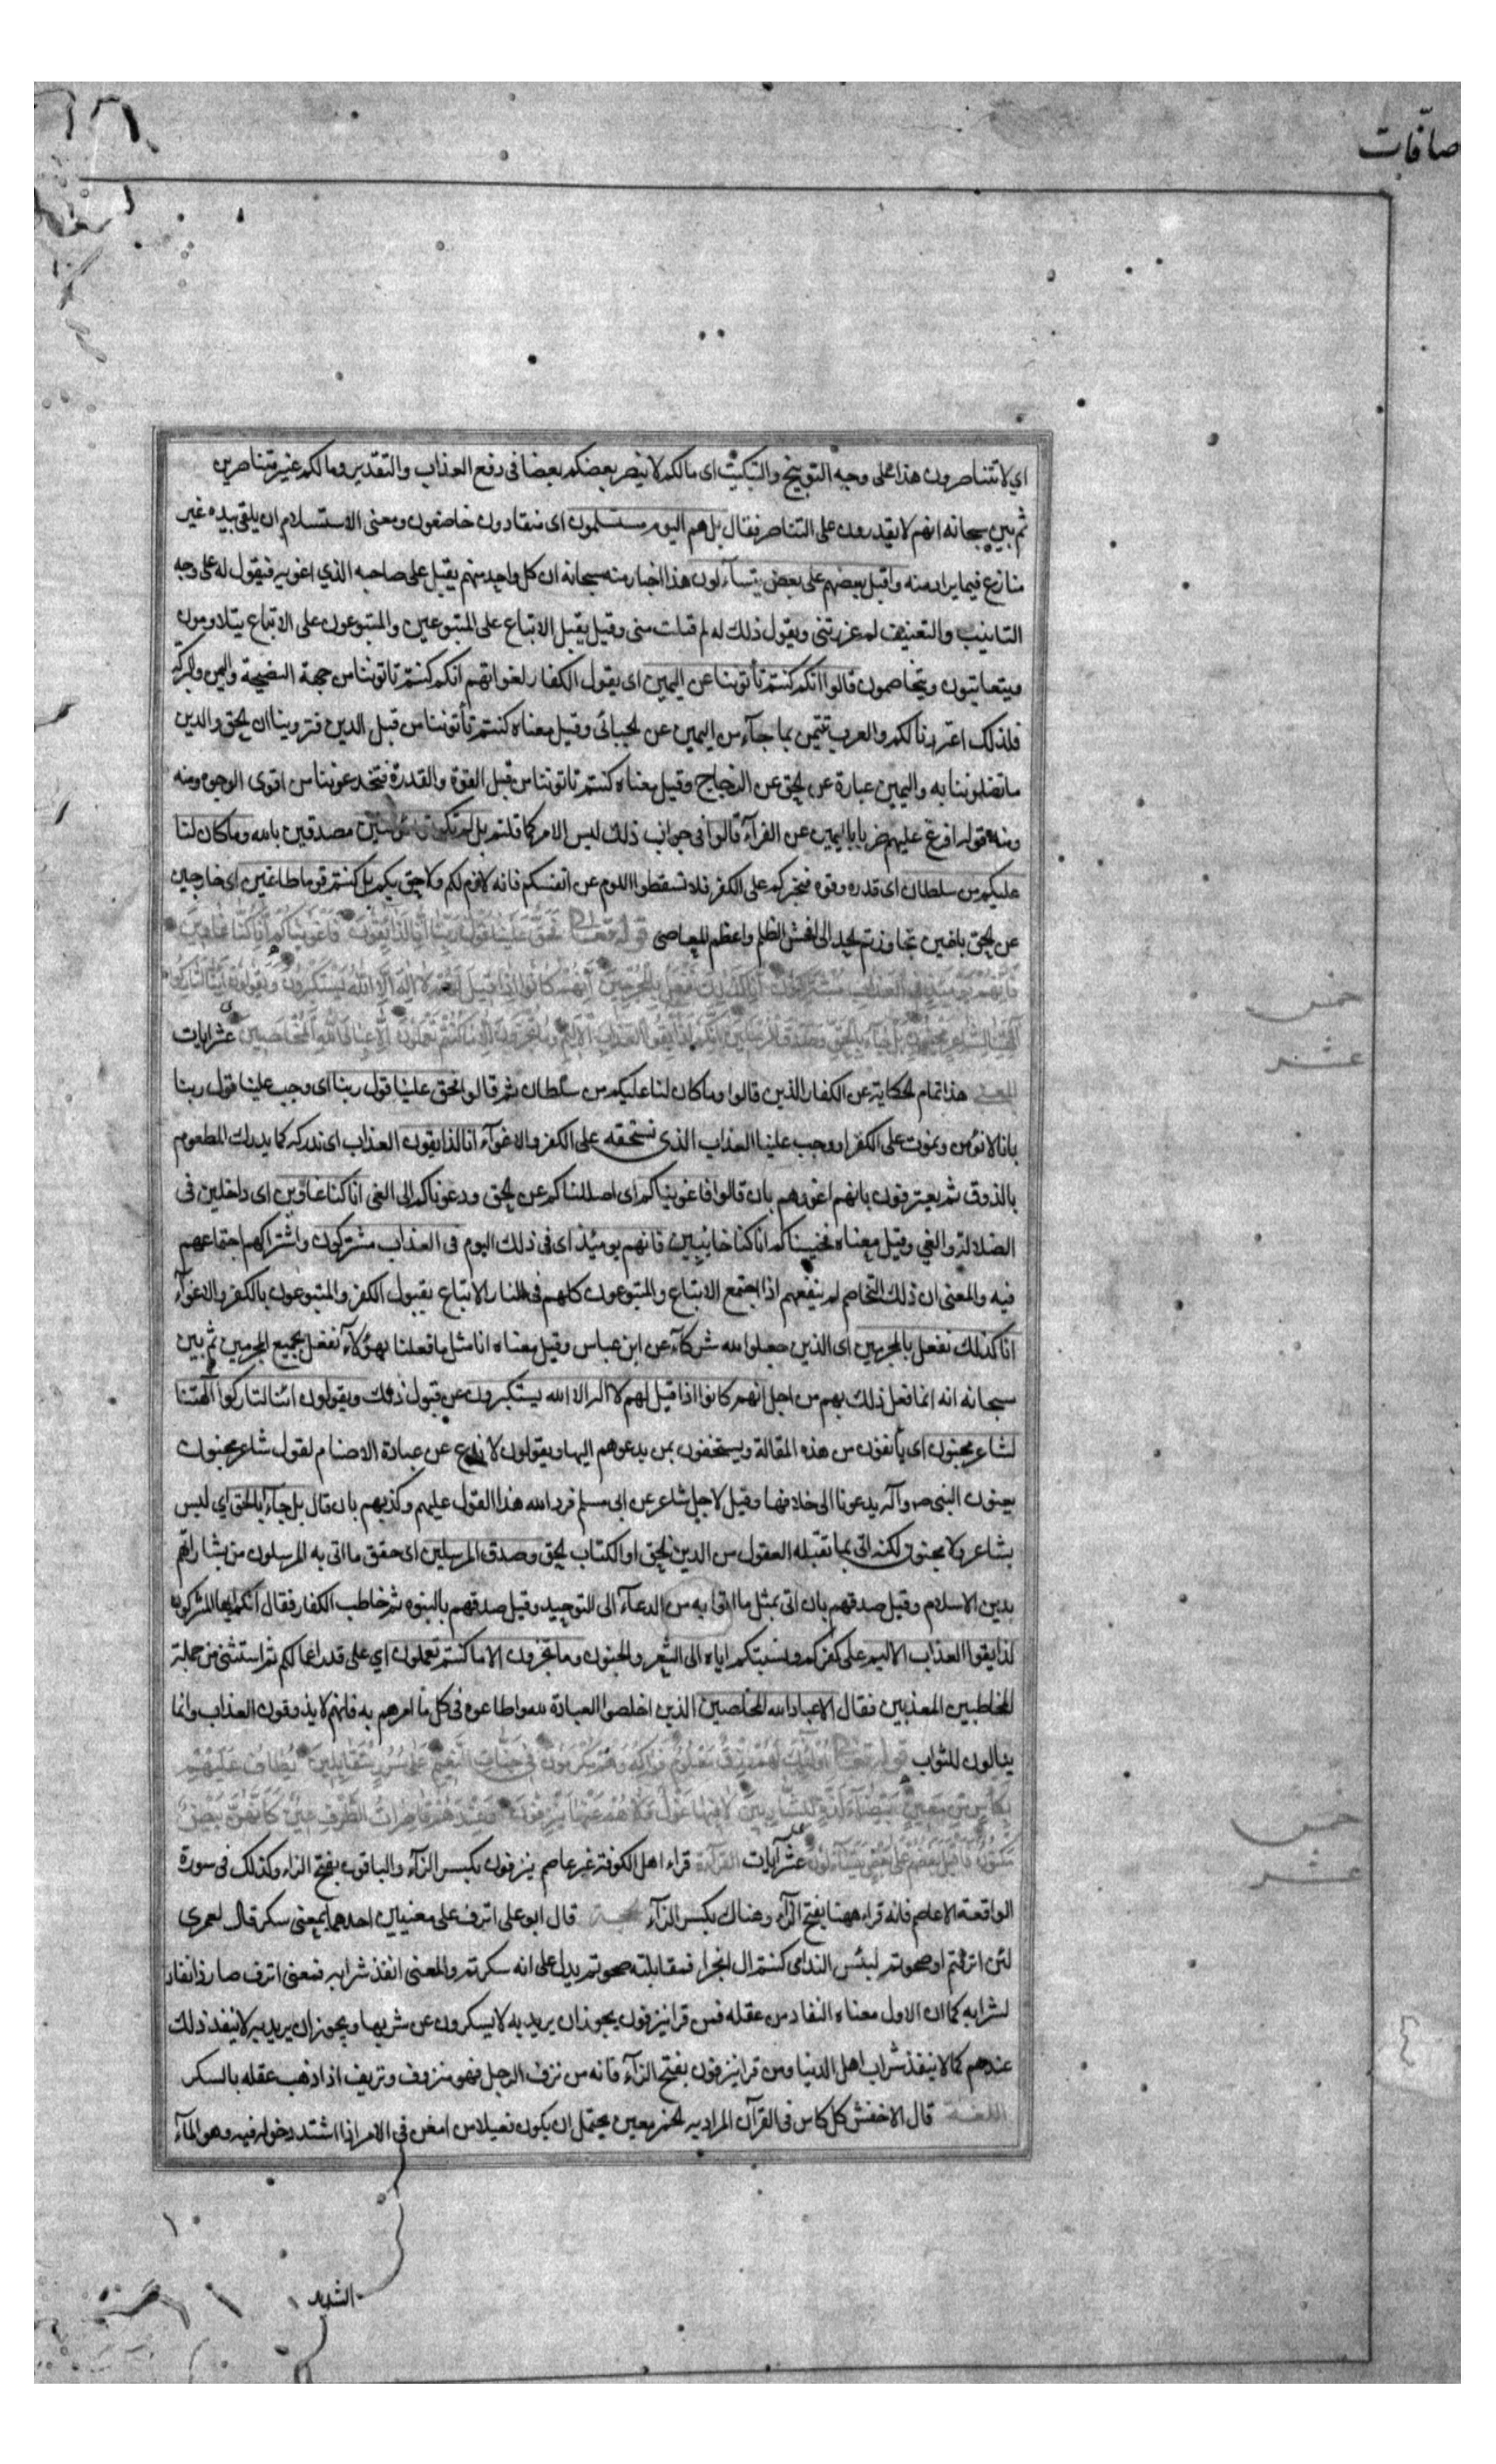 صافّات
اي لا تتناصرون هذا على وجه التوبيخ والتبكيت اى مالكم لا ينصر بعضكم بعضا فى دفع العذاب والتقدير ومالكم غير متناصرين
ثم بين سبحانه انهم لا يقدرون على التناصر فقال بل هم اليوم مستسلمون اى منقادون خاضعون ومعنى الاستسلام ان يلقى بيده غير
منازع فيما يراد منه واقبل بعضهم على بعض يتساءلون هذا اخبار منه سبحانه ان كل واحد منهم يقبل على صاحبه الذي اغويه فيقول له على وجه
التانيب والتعنيف لم غررتنى ويقول ذلك له لم قبلت منى وقيل يقبل الاتباع على المتبوعين والمتبوعون على الاتباع يتلاومون
ويتعاتبون ويتخاصمون قالوا انكم كنتم تأتوننا عن اليمين اى يقول الكفار لغواتهم انكم كنتم تاتوننا من جهة النصيحة واليمن والبركة
فلذلك اغتررنا لكم والعرب تتيمن بما جآء من اليمين عن الجبائى وقيل معناه كنتم تأتوننا من قبل الدين فتروينا ان الحق والدين
ما تضلوننا به واليمين عبارة عن الحق عن الزجاج وقيل معناه كنتم تاتوننا من قبل القوة والقدرة فتخدعوننا من اقوى الوجوه ومنه
ومنه قوله فراغ عليهم ضربا باليمين عن الفرآء قالوا فى جواب ذلك ليس الامر كما قلتم بل لم تكونوا مؤمنين مصدقين بالله وما كان لنا
عليكم من سلطان اى قدرة وقوه فنجبركم على الكفر فلا تسقطوا اللوم عن انفسكم فانه لازم لكم ولاحق بكم بل كنتم قوما طاغين اى خارجين
عن الحق باغين تجاوزتم الحد الى افحش الظلم واعظم المعاصى قوله تعالى فَحَقَّ عَلَيْنَا قَوْلُ رَبِّنَا إِنَّا لَذَائِقُونَ فَأَغْوَيْنَاكُمْ إِنَّا كُنَّا غَاوِينَ
فَإِنَّهُمْ يَوْمَئِذٍ فِي الْعَذَابِ مُشْتَرِكُونَ إِنَّا كَذَلِكَ نَفْعَلُ بِالْمُجْرِمِينَ إِنَّهُمْ كَانُوا إِذَا قِيلَ لَهُمْ لَا إِلَهَ إِلَّا اللَّهُ يَسْتَكْبِرُونَ وَيَقُولُونَ أَئِنَّا لَتَارِكُوا
آلِهَتِنَا لِشَاعِرٍ مَجْنُونٍ بَلْ جَاءَ بِالْحَقِّ وَصَدَّقَ الْمُرْسَلِينَ إِنَّكُمْ لَذَائِقُوا الْعَذَابِ الْأَلِيمِ وَمَا تُجْزَوْنَ إِلَّا مَا كُنْتُمْ تَعْمَلُونَ إِلَّا عِبَادَ اللَّهِ الْمُخْلَصِينَ عشر ايات
المعنى هذا تمام الحكاية عن الكفار الذين قالوا وما كان لنا عليكم من سلطان ثم قالوا فحق علينا قول ربنا اى وجب علينا قول ربنا
بانا لا نؤمن ونموت على الكفر او وجب علينا العذاب الذى نستحقه على الكفر والاغوآء انا لذايقون العذاب اى ندركه كما يدرك المطعوم
بالذوق ثم يعترفون بانهم اغووهم بان قالوا فاغويناكم اى اضللناكم عن الحق ودعوناكم الى الغى انا كنا غاوين اى داخلين فى
الضلالة والغي وقيل معناه فخيبناكم انا كنا خائبين فانهم يومئذ اى فى ذلك اليوم فى العذاب مشتركون واشتراكهم اجتماعهم
فيه والمعنى ان ذلك التخاصم لم ينفعهم اذا اجتمع الاتباع والمتبوعون كلهم فى النار الاتباع بقبول الكفر والمتبوعون بالكفر والاغوآء
انا كذلك نفعل بالمجرمين اى الذين جعلوا لله شركآء عن ابن عباس وقيل معناه انا مثل ما فعلنا بهؤلآء نفعل بجميع المجرمين ثم بين
سبحانه انه انما فعل ذلك بهم من اجل انهم كانوا اذا قيل لهم لا اله الا الله يستكبرون عن قبول ذلك ويقولون ائنا لتاركوا الهتنا
لشاعر مجنون اى يأنفون من هذه المقالة ويستخفون بمن يدعوهم اليها ويقولون لا ندع عن عبادة الاصنام لقول شاعر مجنون
يعنون النبى ص وآله يدعونا الى خلافها وقيل لاجل شاعر عن ابى مسلم فرد الله هذا القول عليهم وكذبهم بان قال بل جآء بالحق اي ليس
بشاعر ولا مجنون لكنه اتى بما تقبله العقول من الدين الحق او الكتاب الحق وصدق المرسلين اى حقق ما اتى به المرسلون من بشاراتهم
بدين الاسلام وقيل صدقهم بان اتى بمثل ما اتوا به من الدعآء الى التوحيد وقيل صدقهم بالنبوه ثم خاطب الكفار فقال انكم ايها المشركون
لذايقوا العذاب الاليم على كفركم ونسبتكم اياه الى الشعر والجنون وما تجزون الا ما كنتم تعملون اي على قدر اعمالكم ثم استثنى من جملة
المخاطبين المعذبين فقال الا عباد الله المخلصين الذين اخلصوا العبادة لله واطاعوه فى كل ما امرهم به فانهم لا يذوقون العذاب وانما
ينالون الثواب قوله تعالى أُولَئِكَ لَهُمْ رِزْقٌ مَعْلُومٌ فَوَاكِهُ وَهُمْ مُكْرَمُونَ فِي جَنَّاتِ النَّعِيمِ عَلَى سُرُرٍ مُتَقَابِلِينَ يُطَافُ عَلَيْهِمْ
بِكَأْسٍ مِنْ مَعِينٍ بَيْضَاءَ لَذَّةٍ لِلشَّارِبِينَ لَا فِيهَا غَوْلٌ وَلَا هُمْ عَنْهَا يُنْزَفُونَ وَعِنْدَهُمْ قَاصِرَاتُ الطَّرْفِ عِينٌ كَأَنَّهُنَّ بَيْضٌ
مَكْنُونٌ فَأَقْبَلَ بَعْضُهُمْ عَلَى بَعْضٍ يَتَسَاءَلُونَ عشر آيات القراءة قراء اهل الكوفة غير عاصم ينزفون بكسر الزآء والباقون بفتح الزاء وكذلك فى سورة
الواقعة الا عاصم فانه قراء ههنا بفتح الزآء وهناك بكسر الزآء الحجة قال ابو على انزف على معنيين احدهما بمعنى سكر قال لعمرى
لئن انزفتم او صحوتم لبئس الندامى كنتم ال ابجرا فمقابلته صحوتم يدل على انه سكرتم والمعنى انفذ شرابه فمعنى انزف صار ذا نفاد
لشرابه كما ان الاول معناه النفاد من عقله فمن قرا ينزفون يجوز ان يريد به لا يسكرون عن شربها ويجوز ان يريد به لا ينفذ ذلك
عندهم كما لا ينفذ شراب اهل الدنيا ومن قرا ينزفون بفتح الزآء فانه من نزف الرجل فهو منزوف ونزيف اذا ذهب عقله بالسكر
اللغة قال الاخفش كل كاس فى القرآن المراد به الخمر معين يحتمل ان يكون فعيلا من امعن فى الامر اذا اشتد دخوله فيه وهو المآء
خمس
عشر
خمس
عشر
الشديد